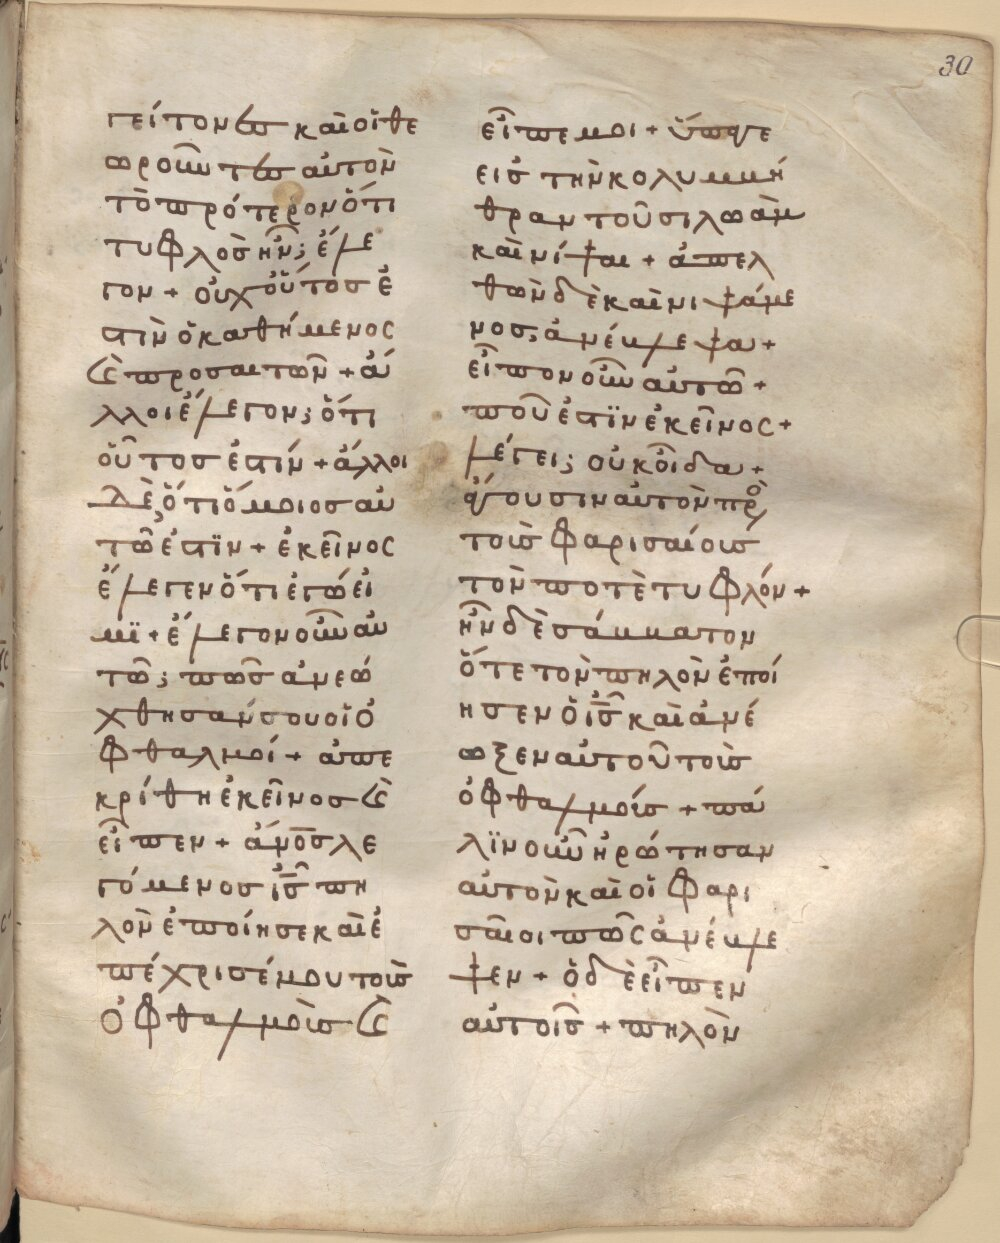 30
γείτονες καὶ οἱ θε
ωροῦντες αὐτὸν
τὸ πρότερον ὅτι
τυφλὸς ἦν; ἔλε
γον + οὐχ οὗτος ἐ
στὶν ὁ καθήμενος
καὶ προσαιτῶν + ἄ
λλοι ἔλεγον; ὅτι
οὗτος ἐστίν + ἄλλοι
δὲ, ὅτι ὅμοιος αυ
τῶ ἐστϊν + ἐκεῖνος
ἔλεγεν ὅτι ἐγώ εἰ
μϊ + ἔλεγον οὖν αυ
τῶ; πῶς ἀνεώ
χθησάν σου οἱ ὀ
φθαλμοί + ἀπε
κρίθη ἐκεῖνος καὶ
εἶπεν + ἄνος λε
γόμενος ις πη
λὸν ἐποίησε καὶ ἐ
πέχρισέ μου τοὺς
ὀφθαλμοὺς καὶ
εἶπε μοι + ὕπαγε
εἰς τὴν κολυμμή
θραν τοῦ σιλωὰμ
καὶ νίψαι + ἀπελ
θὼν δὲ καὶ νιψάμε
νος; ἀνέβλεψα +
εἶπον οὖν αὐτῶ +
ποῦ ἐστϊν ἐκεῖνος +
λέγει; οὐκ οἶδα +
ἄγουσιν αὐτὸν πρὸ
τοὺς φαρισαίους
τὸν ποτὲ τυφλόν +
ἦν δὲ σάββατον
ὅτε τὸν πηλὸν ἐποί
ησεν ὁ ις καὶ ἀνέ
ωξεν αὐτοῦ τοὺς
ὀφθαλμούς + πά
λϊν οὖν ἠρώτησαν
αὐτὸν καὶ οἱ φαρι
σαῖοι πῶς ἀνέβλε
ψεν + ὁ δὲ εἶπεν
αὐτοῖς + πηλὸν